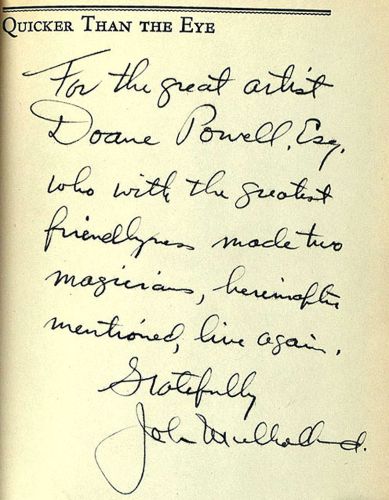 QUICKER THAN THE EYE
For the great artist
Doane Powell, Esq.
who with the greatest
friendlyness made two
magicians, hereinafter
mentioned, live again.
Gratefully
John Mulholland.